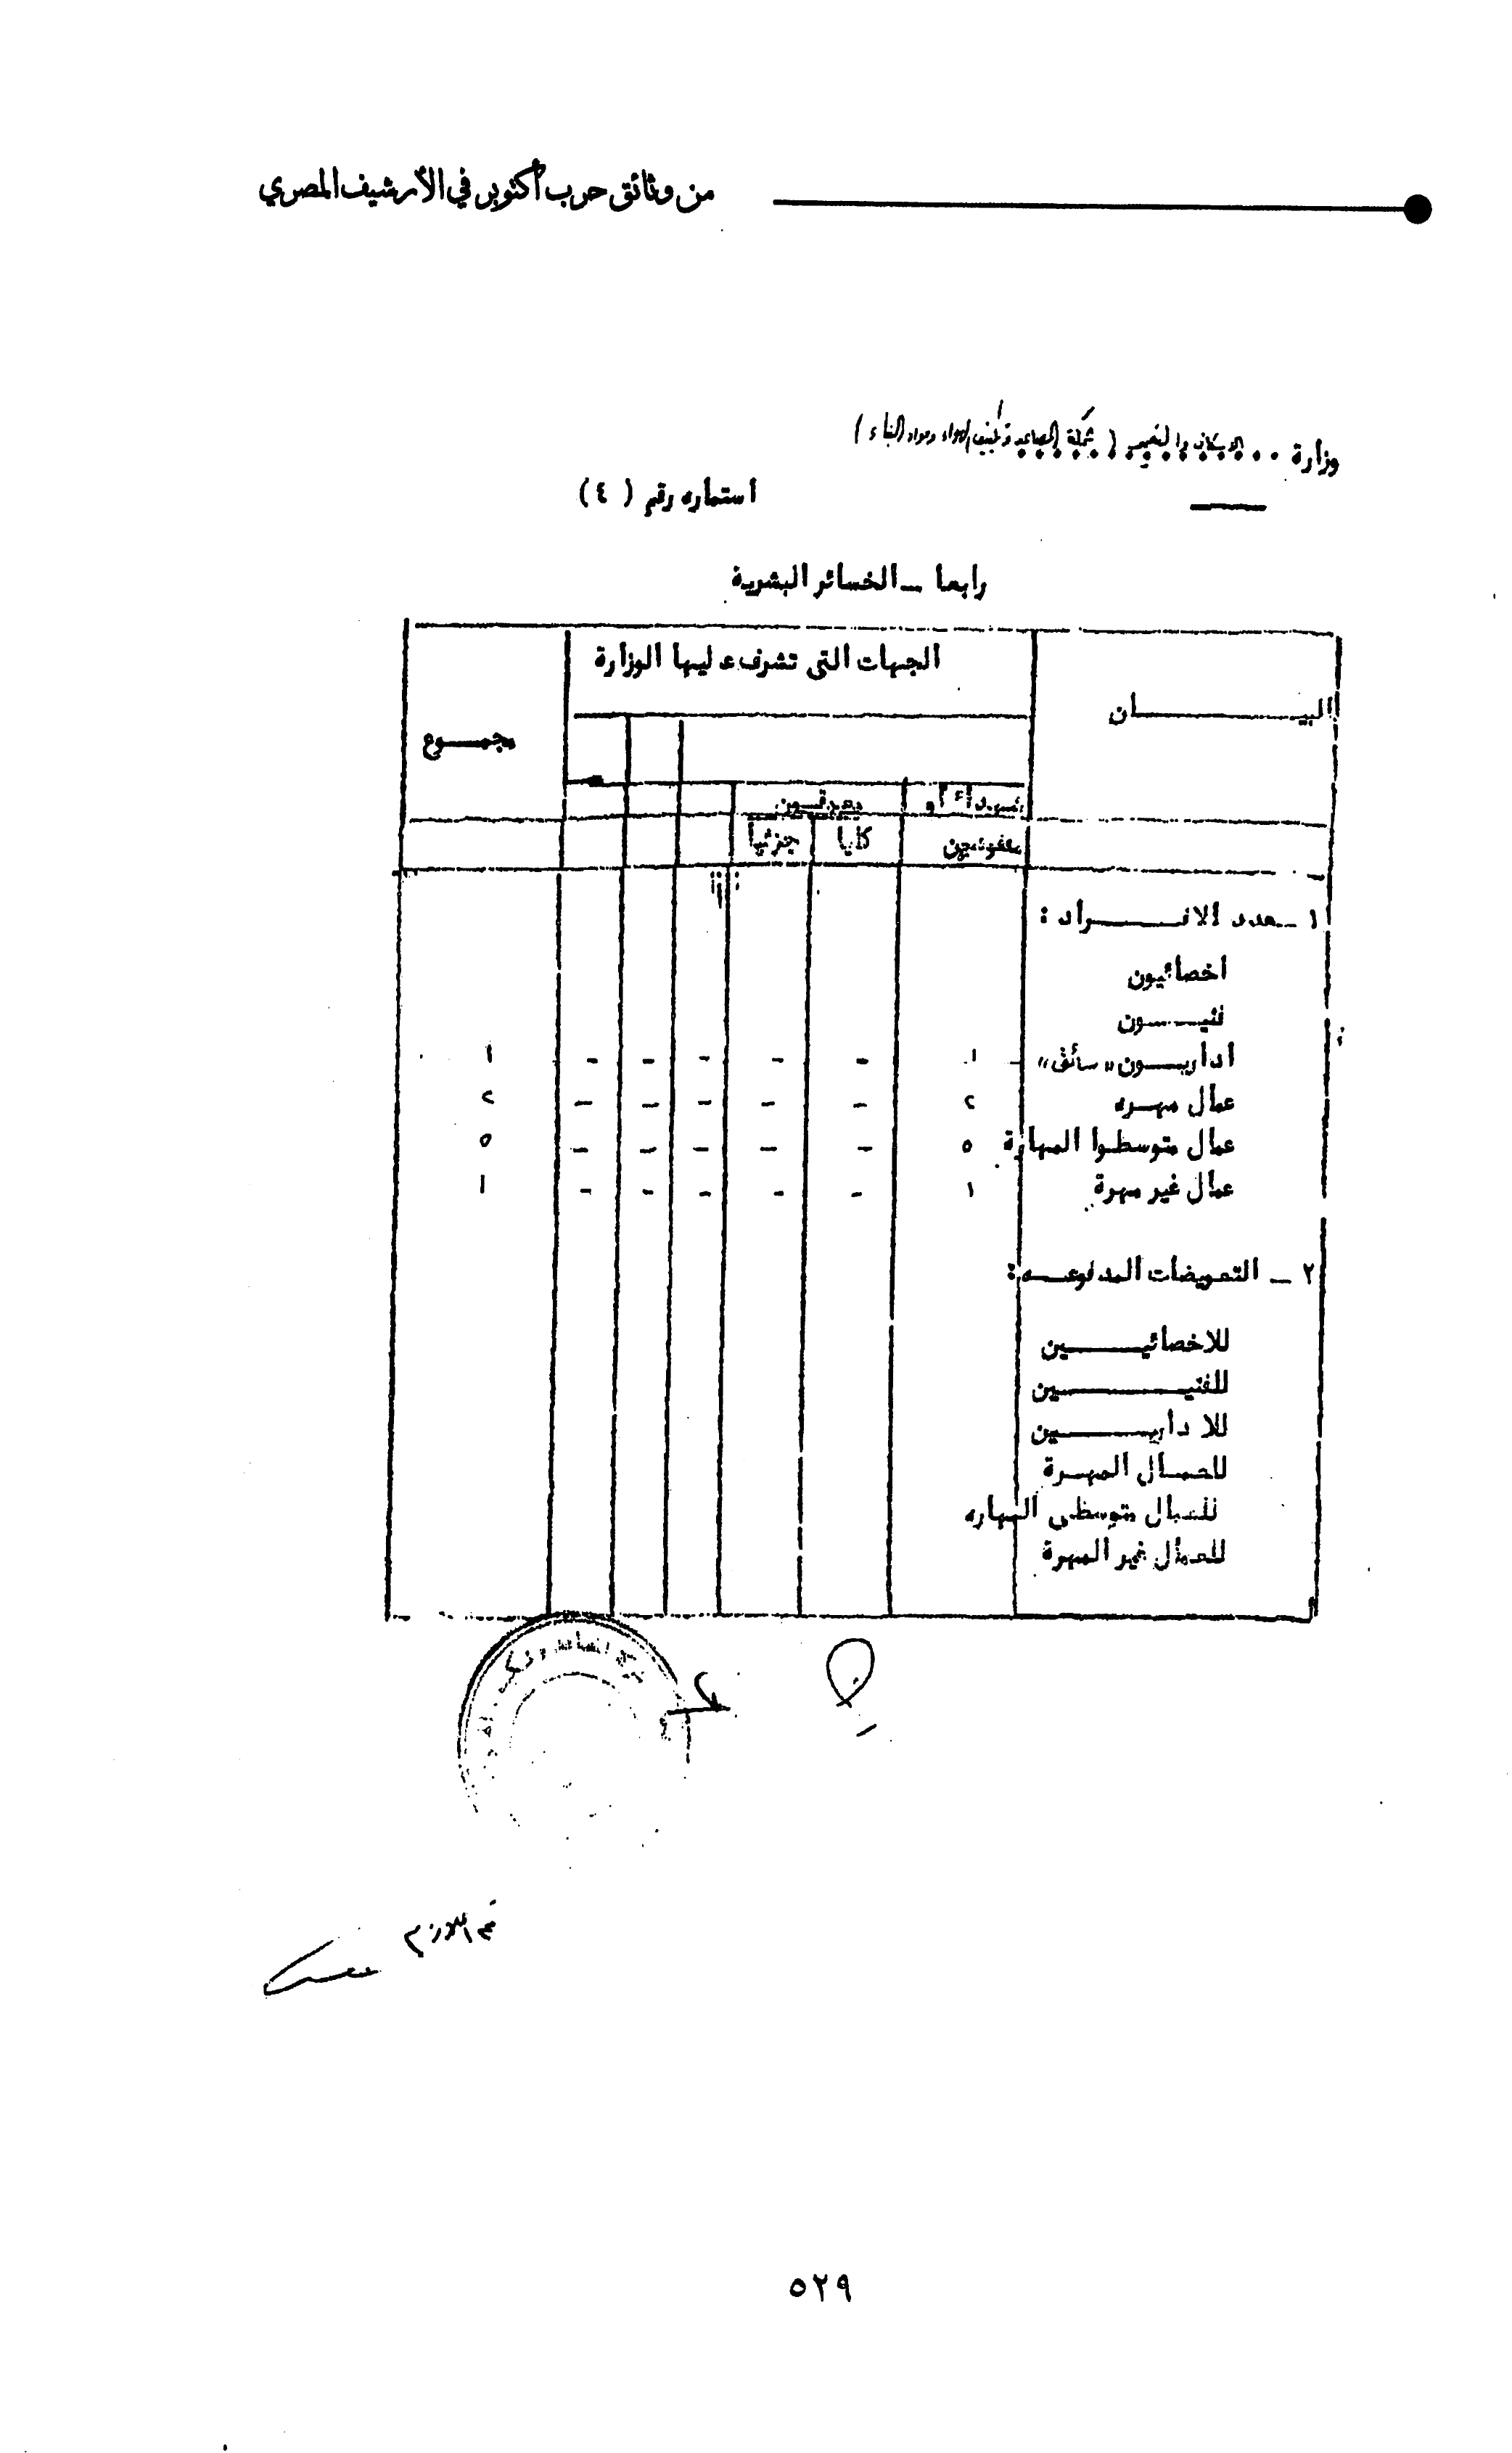 من وثائق حرب أكتوبر في الأرشيف المصري
وزارة الاسكان والتعمير ( شركة المصاعد وتكييف الهواء ومواد البناء )
استماره رقم ( ٤ )
رابعا — الخسائر البشرية
البيـــــان الجهات التى تشرف عليها الوزارة مجمــوع
شهداء و معوقــون
مفقودين كليا جزئيا
١ — عدد الافــــراد :
اخصائيون
فنيــــون
اداريــون "سائق" ١ - - - - - ١
عمال مهــره ٢ - - - - - ٢
عمال متوسطوا المهارة ٥ - - - - - ٥
عمال غير مهرة ١ - - - - - ١
٢ — التعويضات المدفوعــه :
للاخصائيـــــين
للفنيــــــــين
للا داريـــــين
للعمــال المهــرة
للعمال متوسطى المهاره
للعمال غير المهرة
٥٢٩